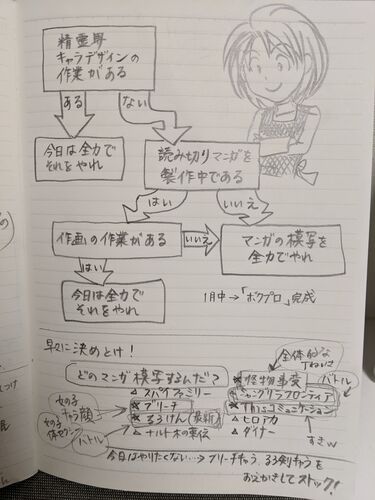 精霊界
キャラデザインの
作業がある
ある
ない
今日は全力で
それをやれ
読み切りマンガを
製作中である
はい
いいえ
作画の作業がある
いいえ
マンガの模写を
全力でやれ
はい
今日は全力で
それをやれ
1月中→「ボクプロ」完成
早々に決めとけ!
全体的な
どのマンガ模写するんだ?
怪物事変
バトル
△スパイファミリー
シャングリラフロンティア
女の子
キャラ顔
ブリーチ
Thisコミュニケーション
女の子
るろうけん(最新)
△ヒロアカ
すきw
バトル
△ナルト
△ダイナー
今日はやりたくない…→ブリーチキャラ、るろ剣キャラを
おえかきしてストック!